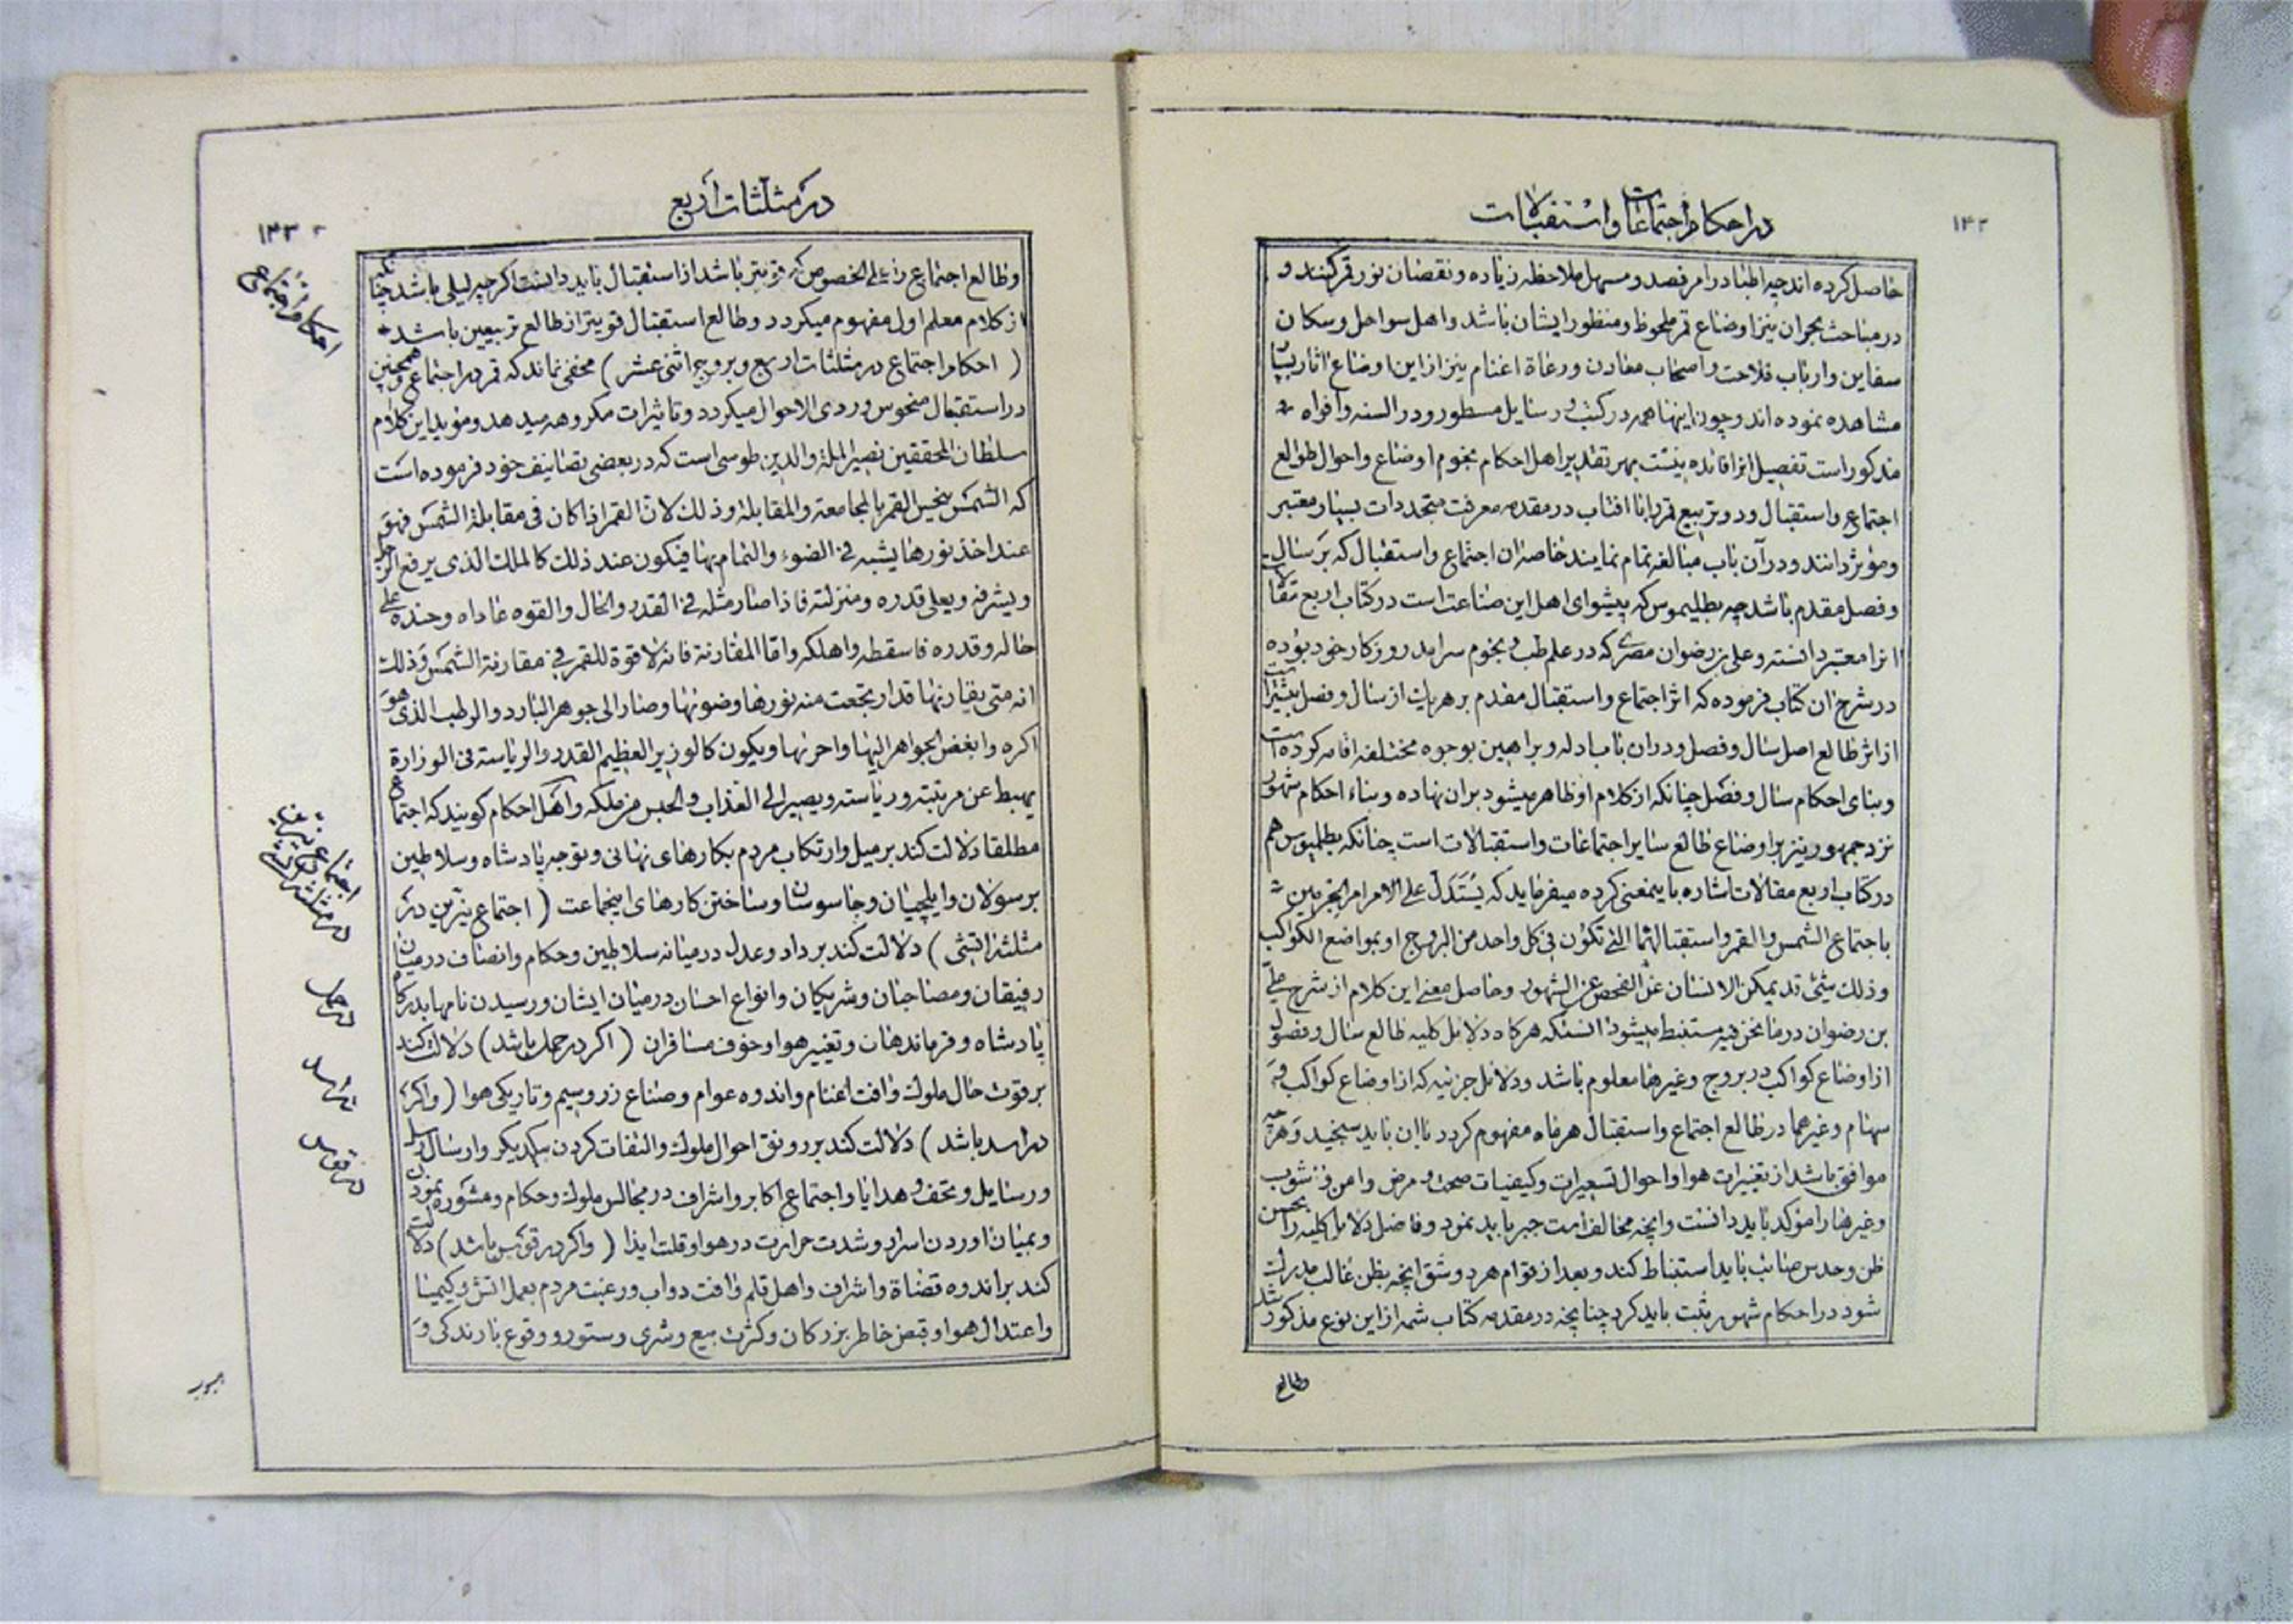 در احکام اجتماعات و استقبالات
۱۳۲
حاصل کرده اند چه اطبا در امر فصد و مسهل ملاحظه زیاده و نقصان نور قمر کنند و
در مباحث بحران نیز اوضاع قمر ملحوظ و منظور ایشان باشد و اهل سواحل و سکان
سفاین و ارباب فلاحت و اصحاب معادن و رعاة اغنام نیز از این اوضاع اثار بسیار
مشاهده نموده اند و چون اینها همه در کتب و رسایل مسطور و در السنه و افواه
مذکور است تفصیل انرا فائده نیست بهر تقدیر اهل احکام نجوم اوضاع و احوال طوالع
اجتماع و استقبال و دو تربیع قمر را با افتاب در مقدمه معرفت متجددات بسیار معتبر
و مؤثر دانند و در آن باب مبالغه تمام نمایند خاصه ان اجتماع و استقبال که بر سال
و فصل مقدم باشد چه بطلیموس که پیشوای اهل این صناعت است در کتاب اربع مقالات
انرا معتبر دانسته و علی بن رضوان مصری که در علم طب و نجوم سرامد روزکار خود بوده
در شرح ان کتاب فرموده که اثر اجتماع و استقبال مقدم بر هر یک از سال و فصل بیشتر است
از اثر طالع اصل سال و فصل و در ان باب ادله و براهین بوجوه مختلفه اقامه کرده است
و بنای احکام سال و فصل چنانکه از کلام او ظاهر میشود بر ان نهاده و بناء احکام شهور
نزد جمهور نیز بر اوضاع طالع سایر اجتماعات و استقبالات است چنانکه بطلمیوس هم
در کتاب اربع مقالات اشاره باینمعنی کرده میفرماید که یستدل علی الامر الجزیین
باجتماع الشمس و القمر و استقبالهما التی تکون فی کل واحد من البروج او بمواضع الکواکب
و ذلک شئ قد یمکن الانسان عن الفحص عن الشهور و حاصل معنی این کلام از شرح علی
بن رضوان در ما نحن فیه مستنبط میشود انستکه هرکاه دلایل کلیه طالع سال و فصول
از اوضاع کواکب در بروج و غیرها معلوم باشد و دلایل جزئیه که از اوضاع کواکب و
سهام و غیرهما در طالع اجتماع و استقبال هر ماه مفهوم کردد باان باید سنجید و هرچه
موافق باشد از تغییرات هوا و احوال تسعیرات و کیفیات صحت و مرض و امن و شوب
و غیرها را مؤکد باید دانست و انچه مخالف است جبر باید نمود و فاضل دلایل کلیه را بحسن
ظن و حدس صائب باید استنباط کند و بعد از قوام هر دو شق انچه بظن غالب مدرک
شود در احکام شهور ثبت باید کرد چنانچه در مقدمه کتاب شمه از این نوع مذکور شد
وطالع
در مثلثات اربع
۱۳۳
وطالع اجتماع را علی الخصوص که قویتر باشد از استقبال باید دانست اکرچه لیلی باشد چنانکه
از کلام معلم اول مفهوم میکردد و طالع استقبال قویتر از طالع تربیعین باشد
( احکام اجتماع در مثلثات اربع و بروج اثنی عشر ) مخفی نماند که قمر در اجتماع و همچنین
در استقبال منحوس و ردی الاحوال میکردد و تاثیرات مکروهه میدهد و مؤید این کلام
سلطان المحققین نصیر الملة و الدین طوسی است که در بعضی تصانیف خود فرموده است
که الشمس ینحس القمر بالمجامعة و المقابلة و ذلک لان القمر اذا کان فی مقابلة الشمس فهو
عند اخذ نورها یشبه فی الضوء و التمام بها فیکون عند ذلک کالملک الذی یرفع الرجل
و یشرفه و یعلی قدره و منزلته فاذا صار مثله فی القدر و الحال و القوه عاداه و حسده علی
حاله و قدره فاسقطه و اهلکه و اما المقارنة فانه لا قوة للقمر فی مقارنة الشمس و ذلک
انه متی یقارنها قد ارتجعت منه نورها و ضوئها و صار الی جوهر البارد و الرطب الذی هو
اکره و ابغض الجواهر الیها و احزنها و یکون کالوزیر العظیم القدر و الریاسته فی الوزارة
یهبط عن مرتبته و ریاسته و یصیر الی العذاب و الحبس من ملکه و اهل احکام کویند که اجتماع
مطلقا دلالت کند بر میل و ارتکاب مردم بکارهای نهانی و توجه پادشاه و سلاطین
برسولان و ایلچیان و جاسوسان و ساختن کارهای اینجماعت ( اجتماع نیرین در
مثلثه اتشی ) دلالت کند بر داد و عدل در میانه سلاطین و حکام و انصاف در میان
رفیقان و مصاحبان و شریکان و انواع احسان در میان ایشان و رسیدن نامها بدرکاه
پادشاه و فرماندهان و تغییر هوا و خوف مسافران ( اکر در حمل باشد ) دلالت کند
بر قوت حال ملوک و افت اغنام و اندوه عوام و صناع زر و سیم و تاریکی هوا ( و اکر
در اسد باشد ) دلالت کند بر رونق احوال ملوک و التفات کردن بیکدیکر و ارسال رسل
و رسایل و تحف و هدایا و اجتماع اکابر و اشراف در مجالس ملوک و حکام و مشوره نمودن
و بمیان اوردن اسرار و شدت حرارت در هوا و قلت ایذا ( و اکر در قوس باشد ) دلالت
کند بر اندوه قضاة و اشراف و اهل قلم و افت دواب و رغبت مردم بعمل اتش و کیمیا
و اعتدال هوا و قبض خاطر بزرکان و کثرت بیع و شری و ستور و وقوع بارندکی و
احکام اجتماع
اجتماع نیرین
در مثلثه اتشی
در حمل
در اسد
در قوس